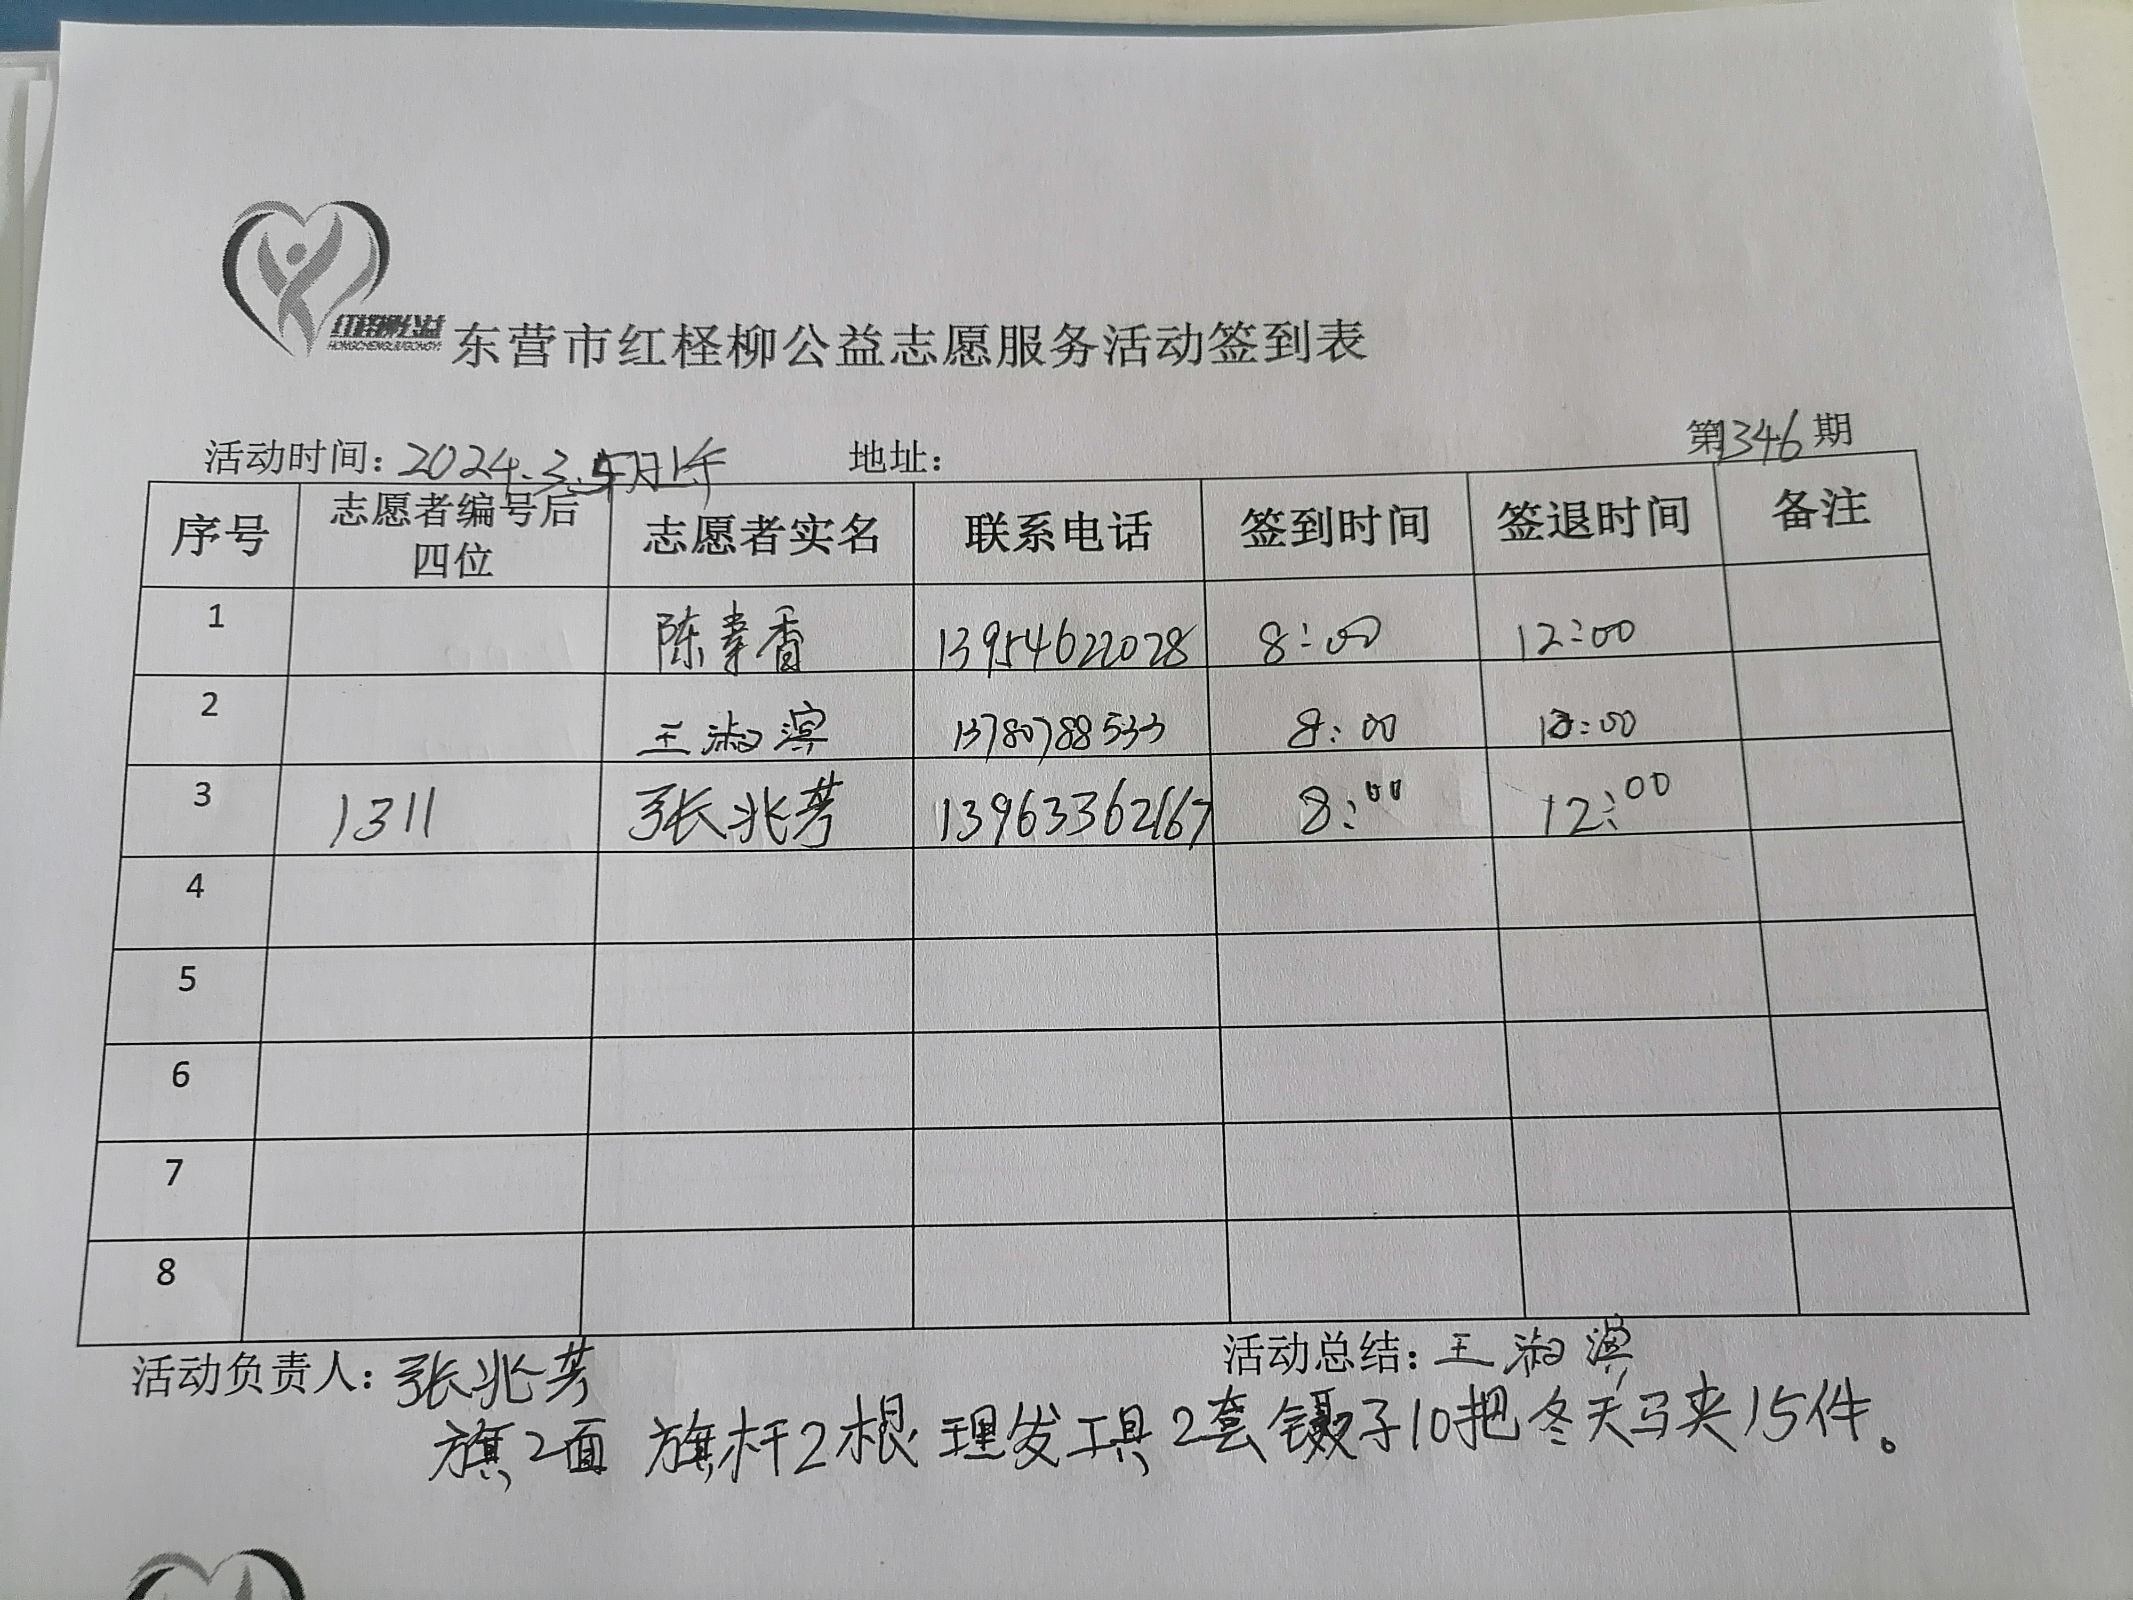 红柽柳公益
HONGCHENGLIUGONGYI
东营市红柽柳公益志愿服务活动签到表
活动时间：2024.3.5 上午 地址： 第1346期
序号 志愿者编号后四位 志愿者实名 联系电话 签到时间 签退时间 备注
1 陈秉香 13954622028 8:00 12:00
2 王淑滨 13780788533 8:00 12:00
3 1311 张兆芳 13963362167 8:00 12:00
4
5
6
7
8
活动负责人：张兆芳 活动总结：王淑滨
旗2面 旗杆2根 理发工具2套 镊子10把 冬天马夹15件。